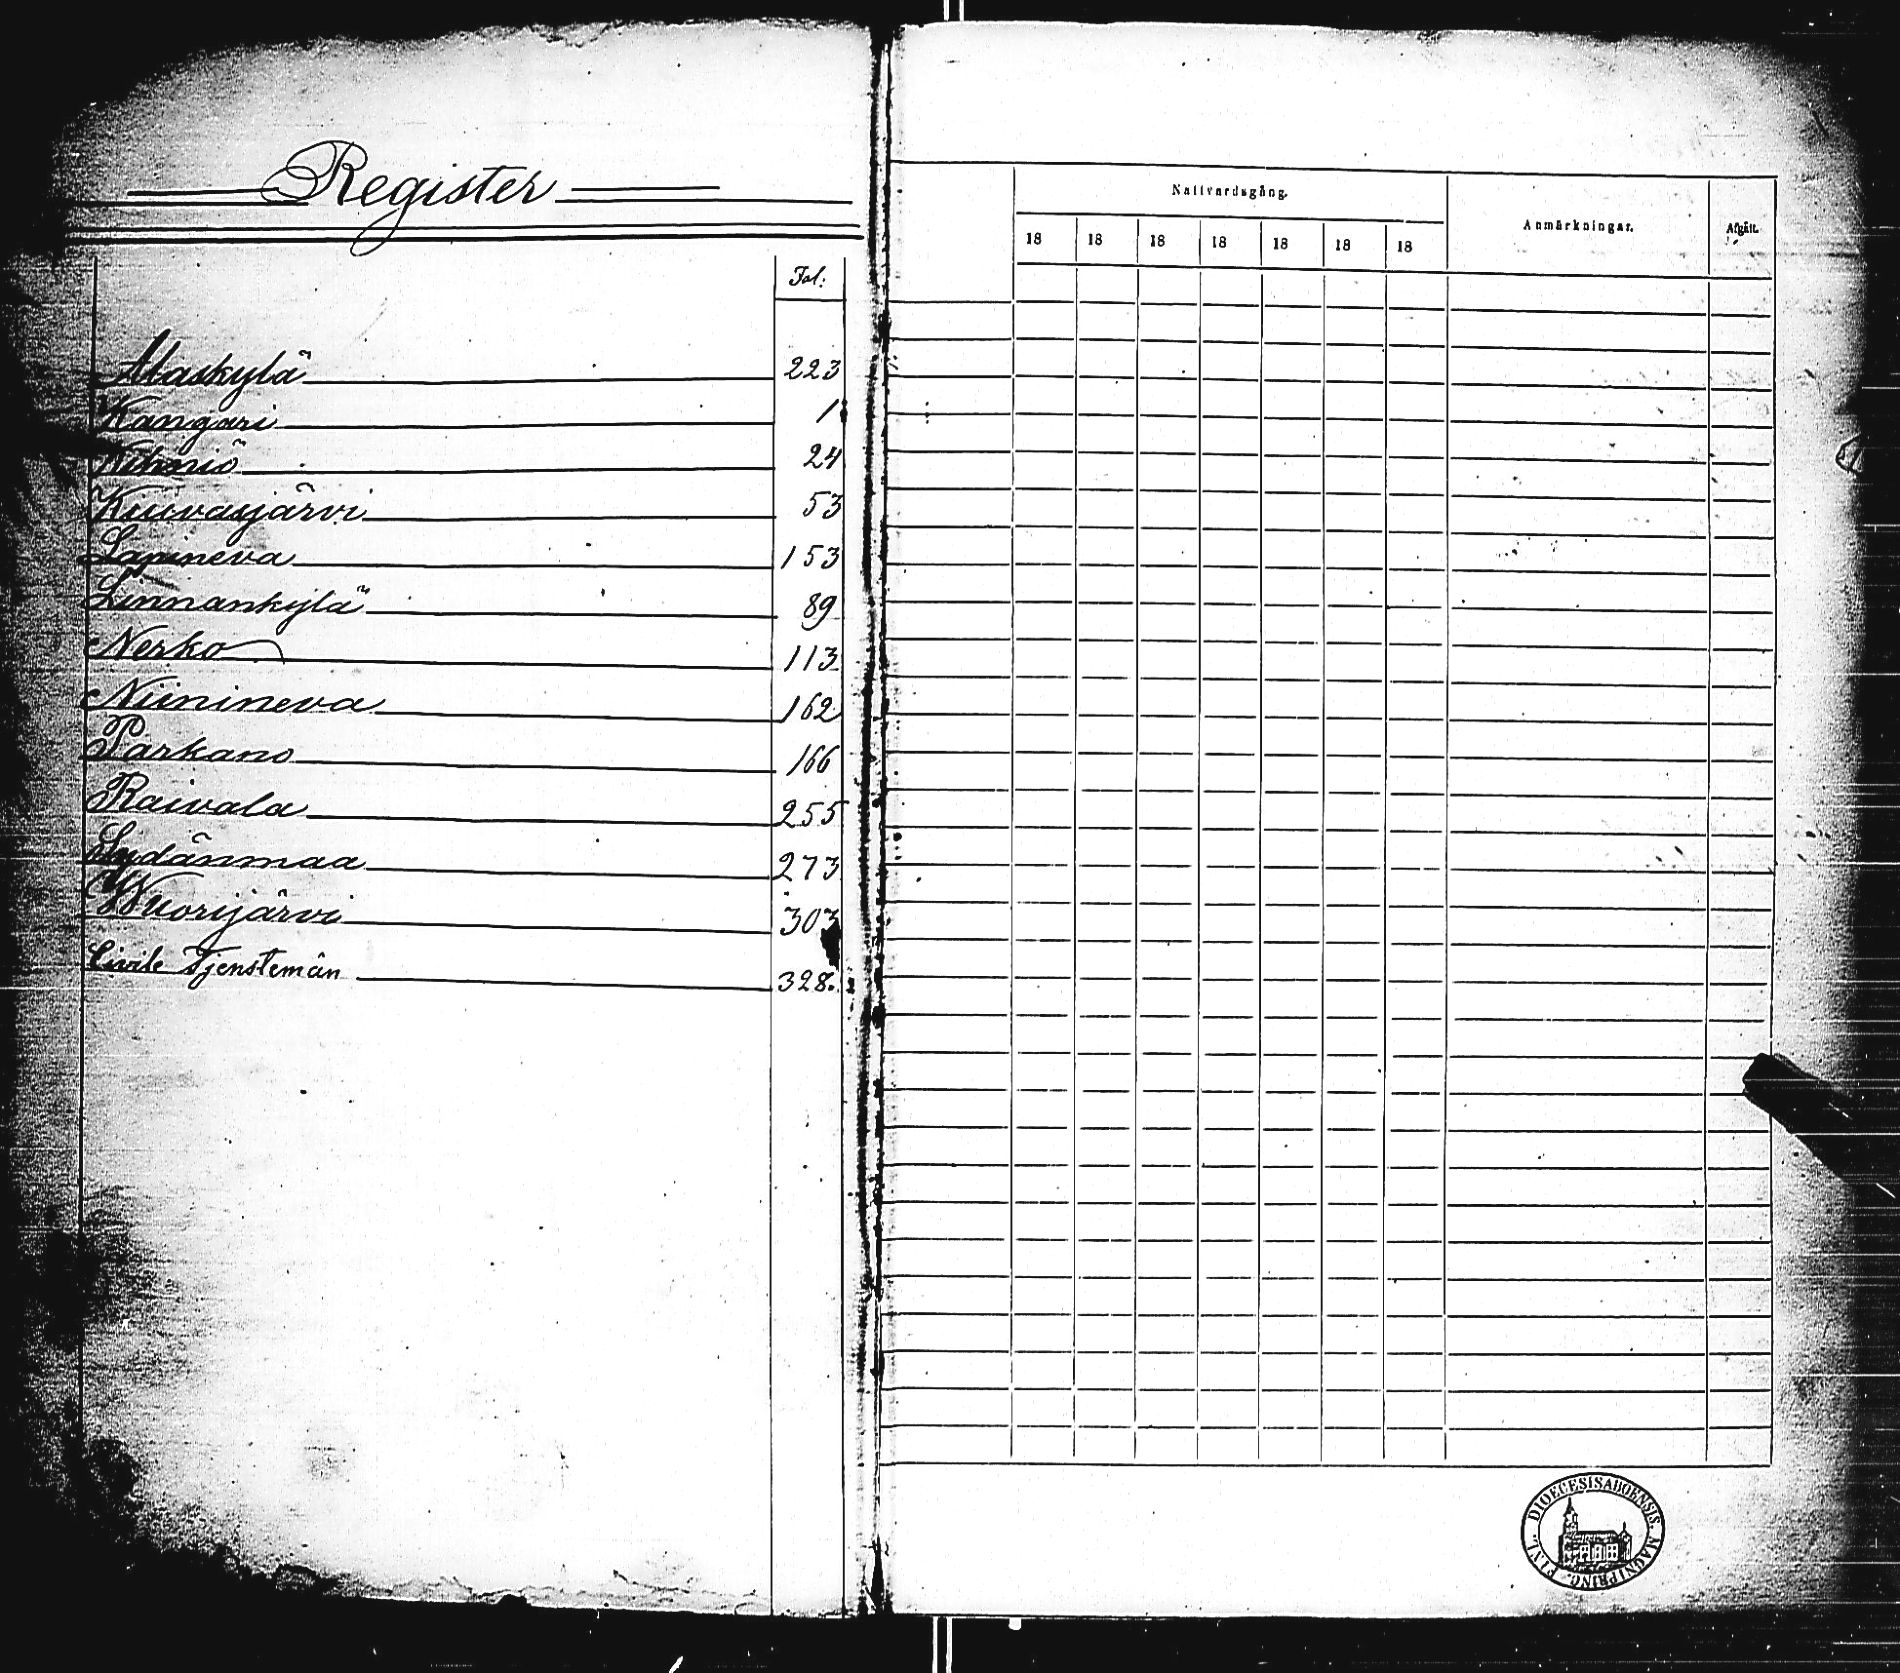 Register
Fol:
Alaskylä 223
Kangari 1
Kihniö 24
Kuivasjärvi 53
Lapineva 153
Linnankylä 89
Nerko 113
Niinineva 162
Parkano 166
Raivala 255
Sydänmaa 273
Wuorijärvi 303
Civile Tjenstemän 328.
Nattvardsgång.
Anmärkningar.
Afgått.
18 18 18 18 18 18 18
DIOECESISABOENSIS. MAGNIPRINC. FINL.